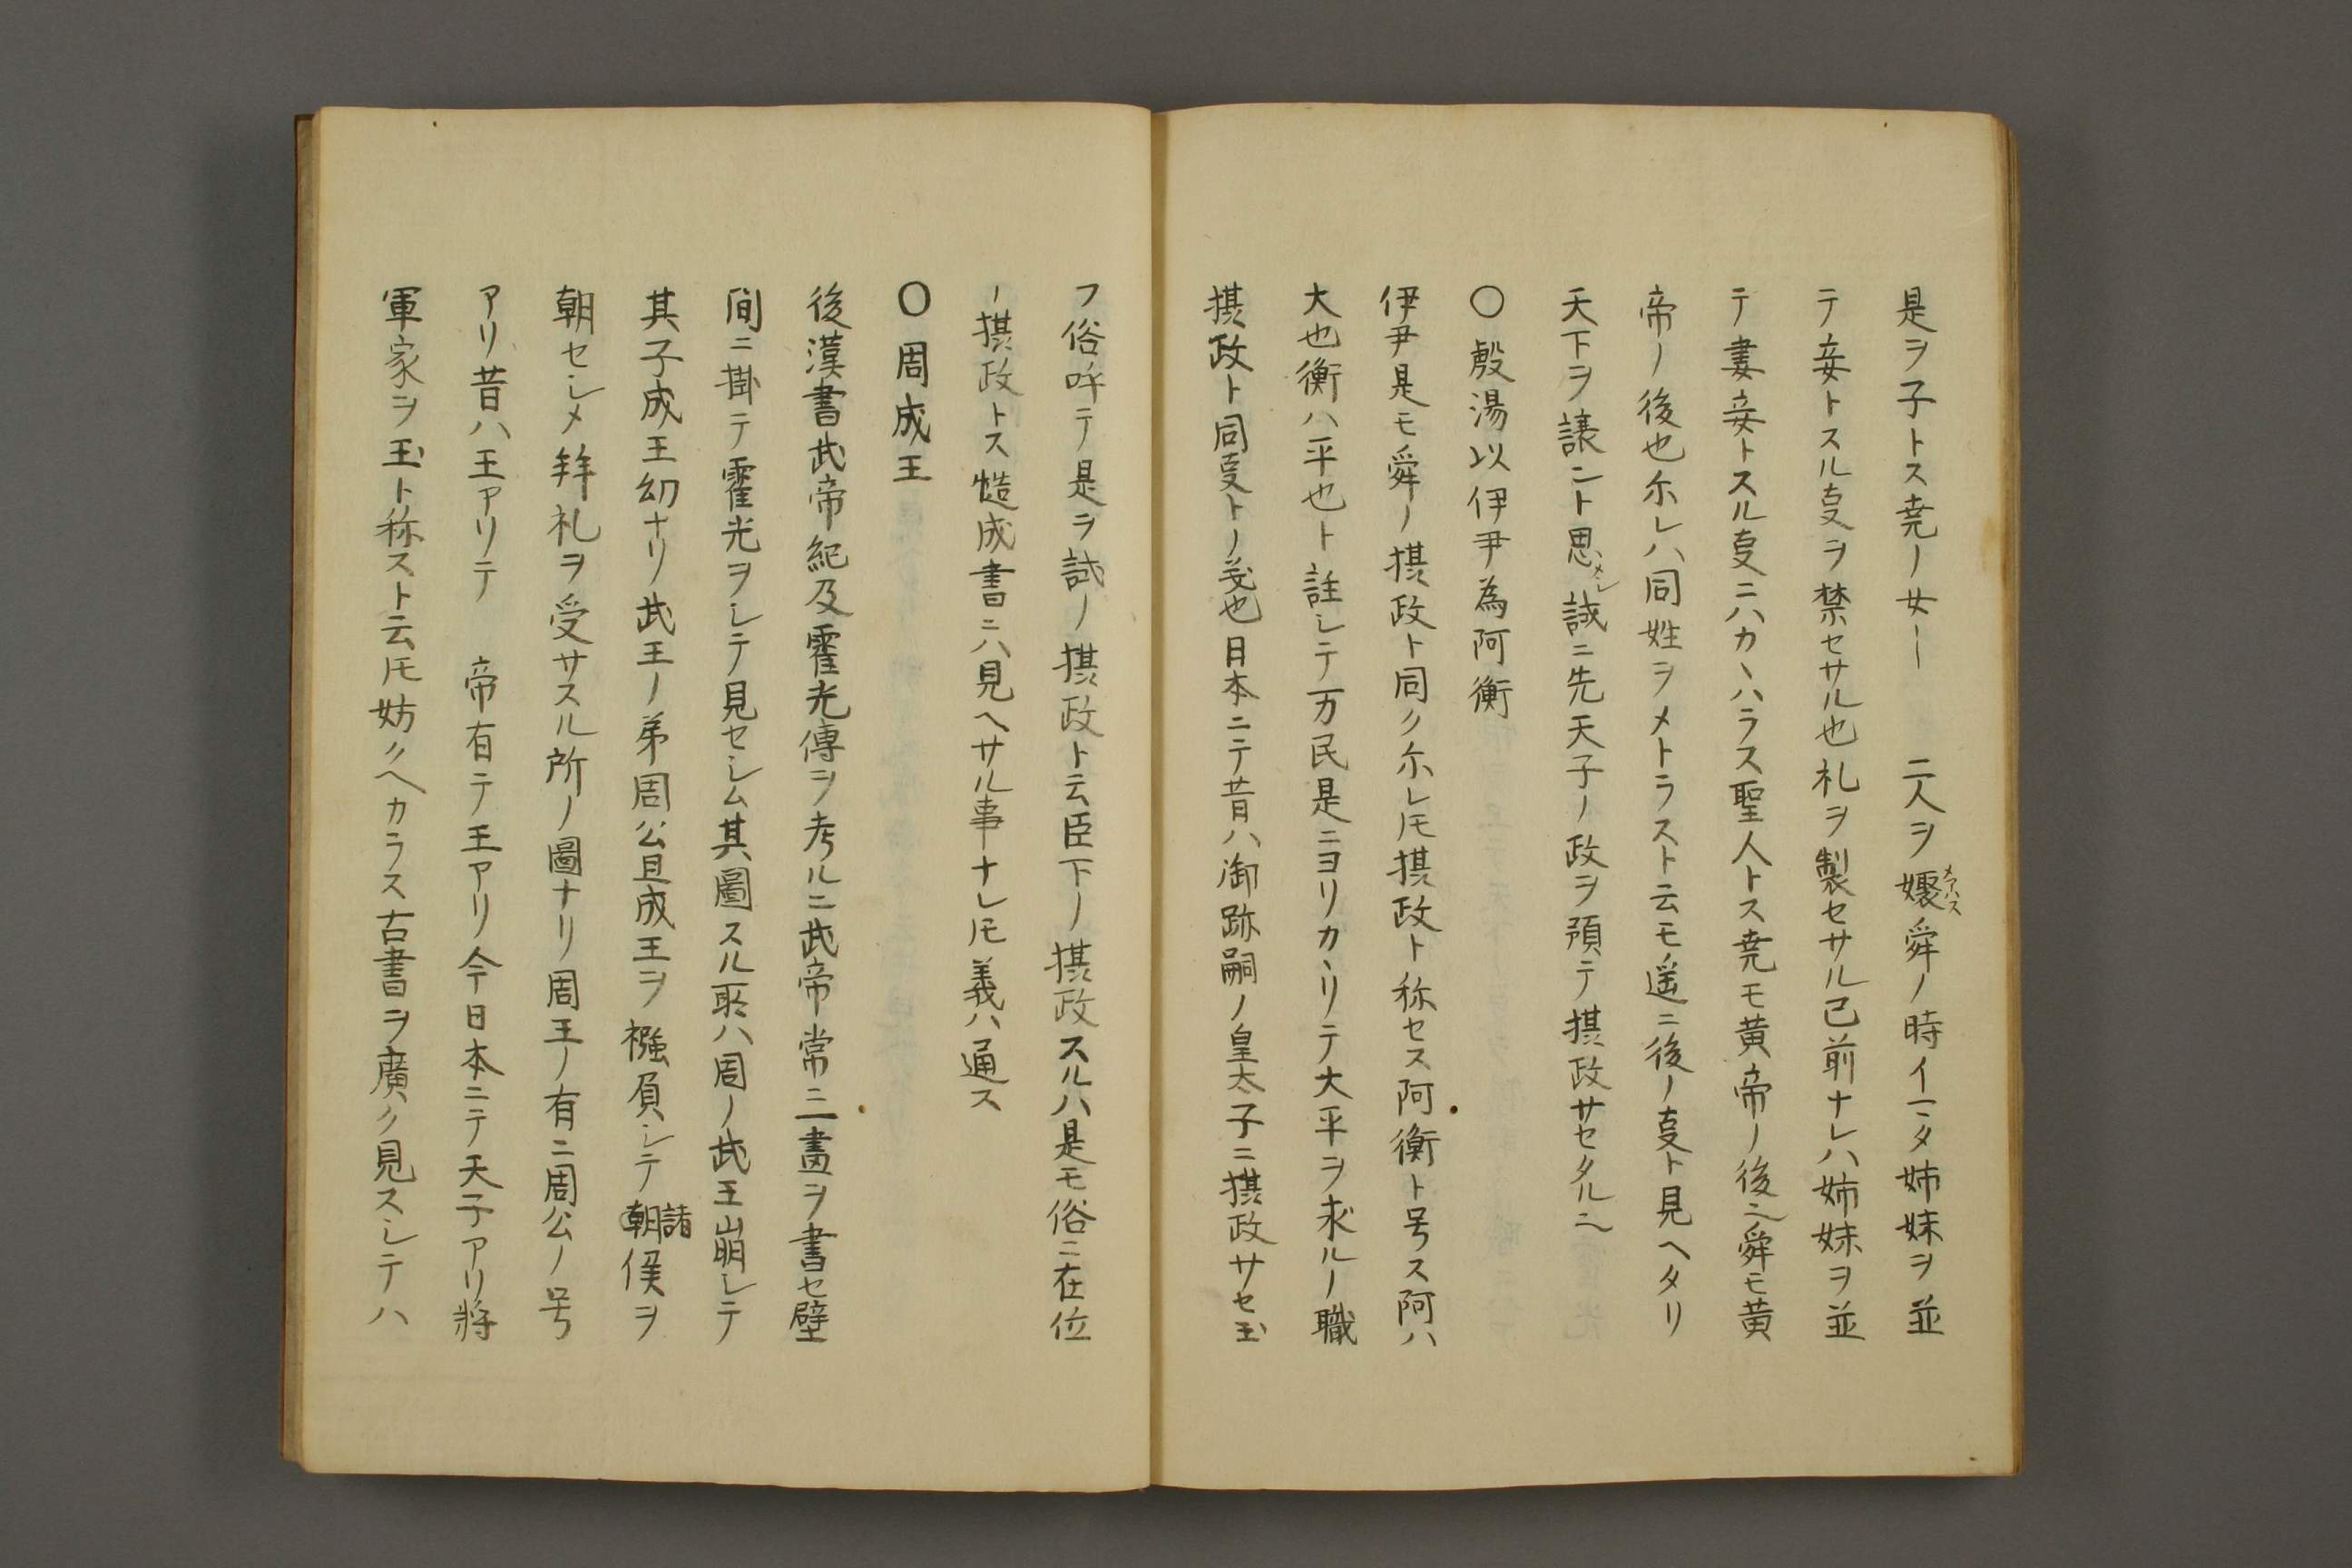 是ヲ子トス尭ノ女ー　二人ヲ嬺メアハス舜ノ時イマタ姉妹ヲ並
テ妾トスル叓ヲ禁セサル也礼ヲ製セサル已前ナレハ姉妹ヲ並
テ妻妾トスル叓ニハカヽハラス聖人トス尭モ黄帝ノ後也舜モ黄
帝ノ後也尓レハ同姓ヲメトラスト云モ遥ニ後ノ叓ト見ヘタリ
天下ヲ譲ント思メシ誠ニ先天子ノ政ヲ預テ摂政サセタル也
〇殷湯以伊尹為阿衡
伊尹是モ舜ノ摂政ト同ク尓レ𪜈摂政ト称セス阿衡ト号ス阿ハ
大也衡ハ平也ト註シテ万民是ニヨリカヽリテ大平ヲ求ルノ職
摂政ト同叓トノ義也日本ニテ昔ハ御跡嗣ノ皇太子ニ摂政サセ玉
フ俗呼テ是ヲ誠ノ摂政ト云臣下ノ摂政スルハ是モ俗ニ在位
ノ摂政トス慥成書ニハ見ヘサル事ナレ𪜈義ハ通ス
〇周成王
後漢書武帝紀及霍光傳ヲ考ルニ武帝常ニ畫ヲ書セ壁
間ニ掛テ霍光ヲシテ見セシム其圖スル所ハ周ノ武王崩シテ
其子成王幼ナリ武王ノ弟周公旦成王ヲ襁負シテ朝諸侯ヲ
朝セシメ拜礼ヲ受サスル所ノ圖ナリ周王ノ有ニ周公ノ号
アリ昔ハ王アリテ　帝有テ王アリ今日本ニテ天子アリ将
軍家ヲ玉ト称スト云𪜈妨クヘカラス古書ヲ廣ク見スシテハ